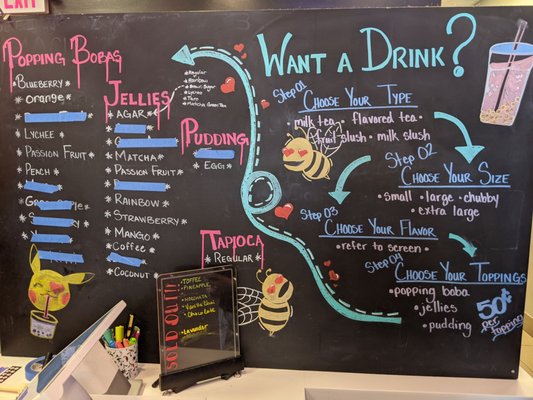 EXIT
Popping Bobas
Blueberry
Orange
Lychee
Passion Fruit
Peach
Jellies
Agar
Matcha
Passion Fruit
Rainbow
Strawberry
Mango
Coffee
Coconut
Pudding
Egg
Tapioca
Regular
Regular
Rainbow
Brown Sugar
Lychee
Matcha Green Tea
Want a Drink?
Step 01
Choose Your Type
milk tea • flavored tea •
fruit slush • milk slush
Step 02
Choose Your Size
• small • large • chubby
• extra large
Step 03
Choose Your Flavor
• refer to screen •
Step 04
Choose Your Toppings
• popping boba
• jellies
• pudding
50¢
per topping
SOLD OUT!!
• Toffee
• Pineapple
• Horchata
• Chocolate
• Lavender